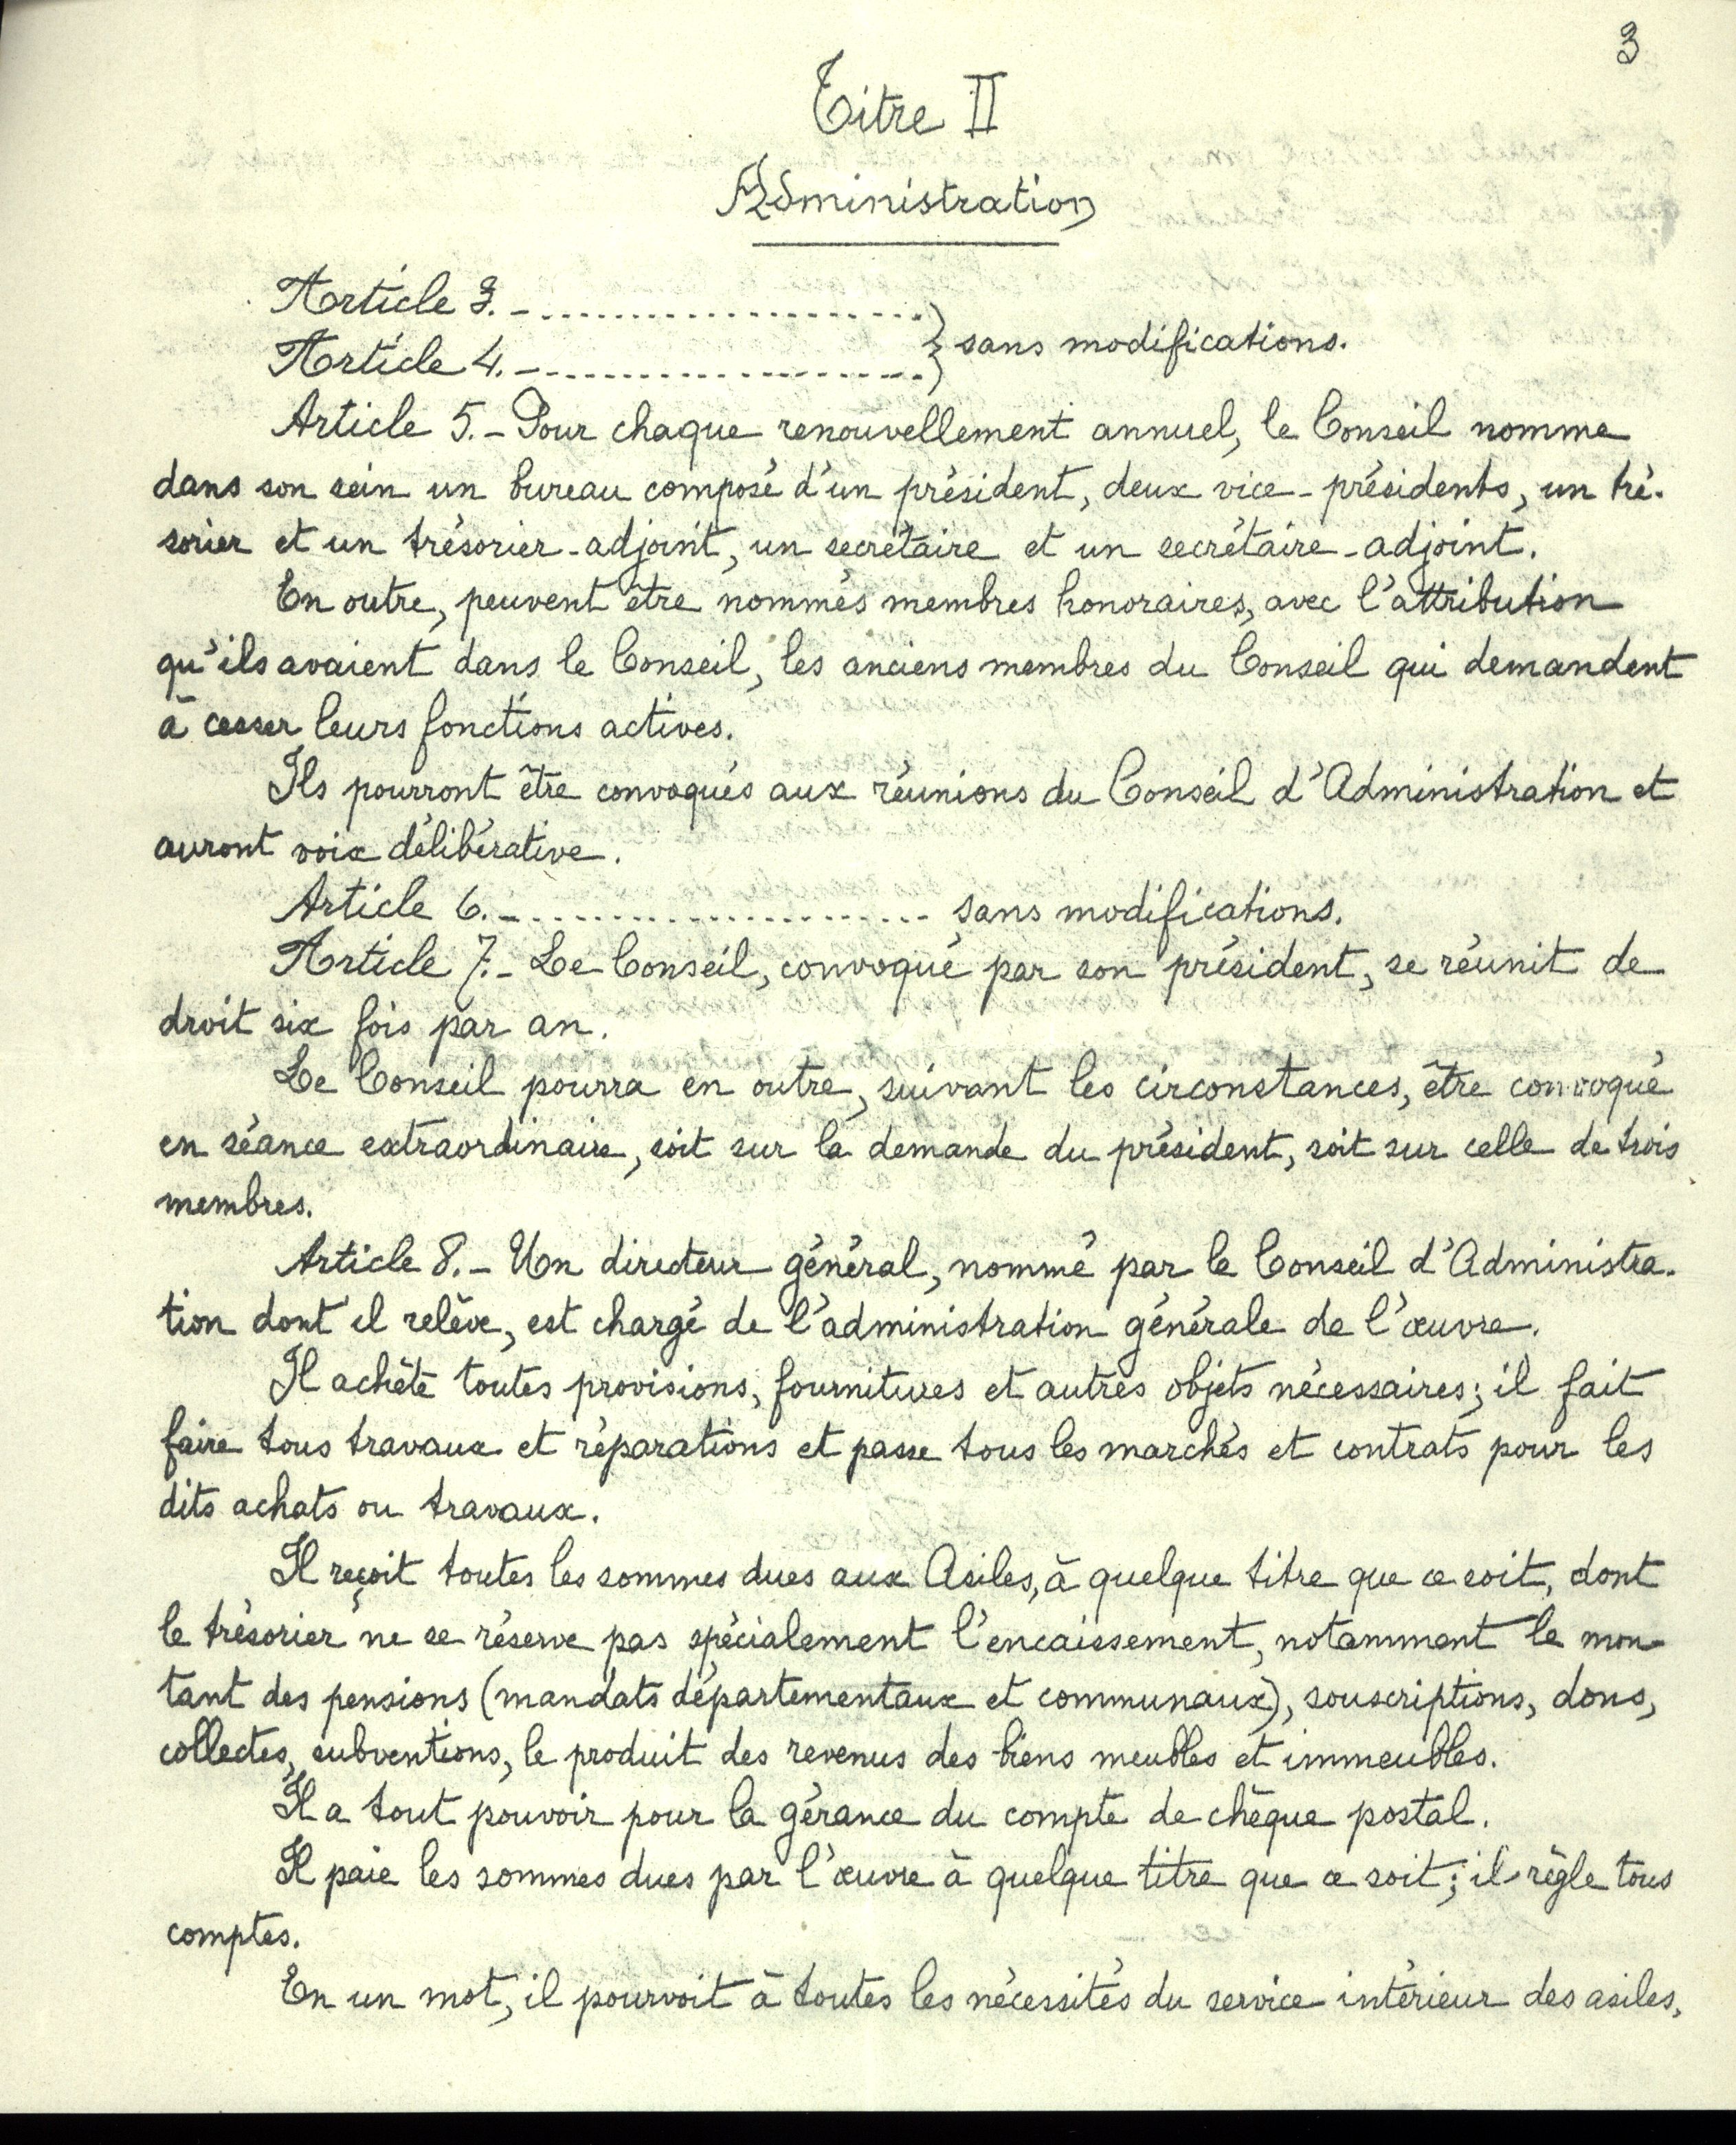 3
Titre II
Administration
Article 3. - ........................ } sans modifications.
Article 4. - ........................ }
Article 5. - Pour chaque renouvellement annuel, le Conseil nomme
dans son sein un bureau composé d'un président, deux vice-présidents, un tré-
sorier et un trésorier-adjoint, un secrétaire et un secrétaire-adjoint.
En outre, peuvent être nommés membres honoraires, avec l'attribution
qu'ils avaient dans le Conseil, les anciens membres du Conseil qui demandent
à cesser leurs fonctions actives.
Ils pourront être convoqués aux réunions du Conseil d'Administration et
auront voix délibérative.
Article 6. - ........................ sans modifications.
Article 7. - Le Conseil, convoqué par son président, se réunit de
droit six fois par an.
Le Conseil pourra en outre, suivant les circonstances, être convoqué
en séance extraordinaire, soit sur la demande du président, soit sur celle de trois
membres.
Article 8. - Un directeur général, nommé par le Conseil d'Administra-
tion dont il relève, est chargé de l'administration générale de l'œuvre.
Il achète toutes provisions, fournitures et autres objets nécessaires; il fait
faire tous travaux et réparations et passe tous les marchés et contrats pour les
dits achats ou travaux.
Il reçoit toutes les sommes dues aux Asiles, à quelque titre que ce soit, dont
le trésorier ne se réserve pas spécialement l'encaissement, notamment le mon-
tant des pensions (mandats départementaux et communaux), souscriptions, dons,
collectes, subventions, le produit des revenus des biens meubles et immeubles.
Il a tout pouvoir pour la gérance du compte de chèque postal.
Il paie les sommes dues par l'œuvre à quelque titre que ce soit; il règle tous
comptes.
En un mot, il pourvoit à toutes les nécessités du service intérieur des asiles,